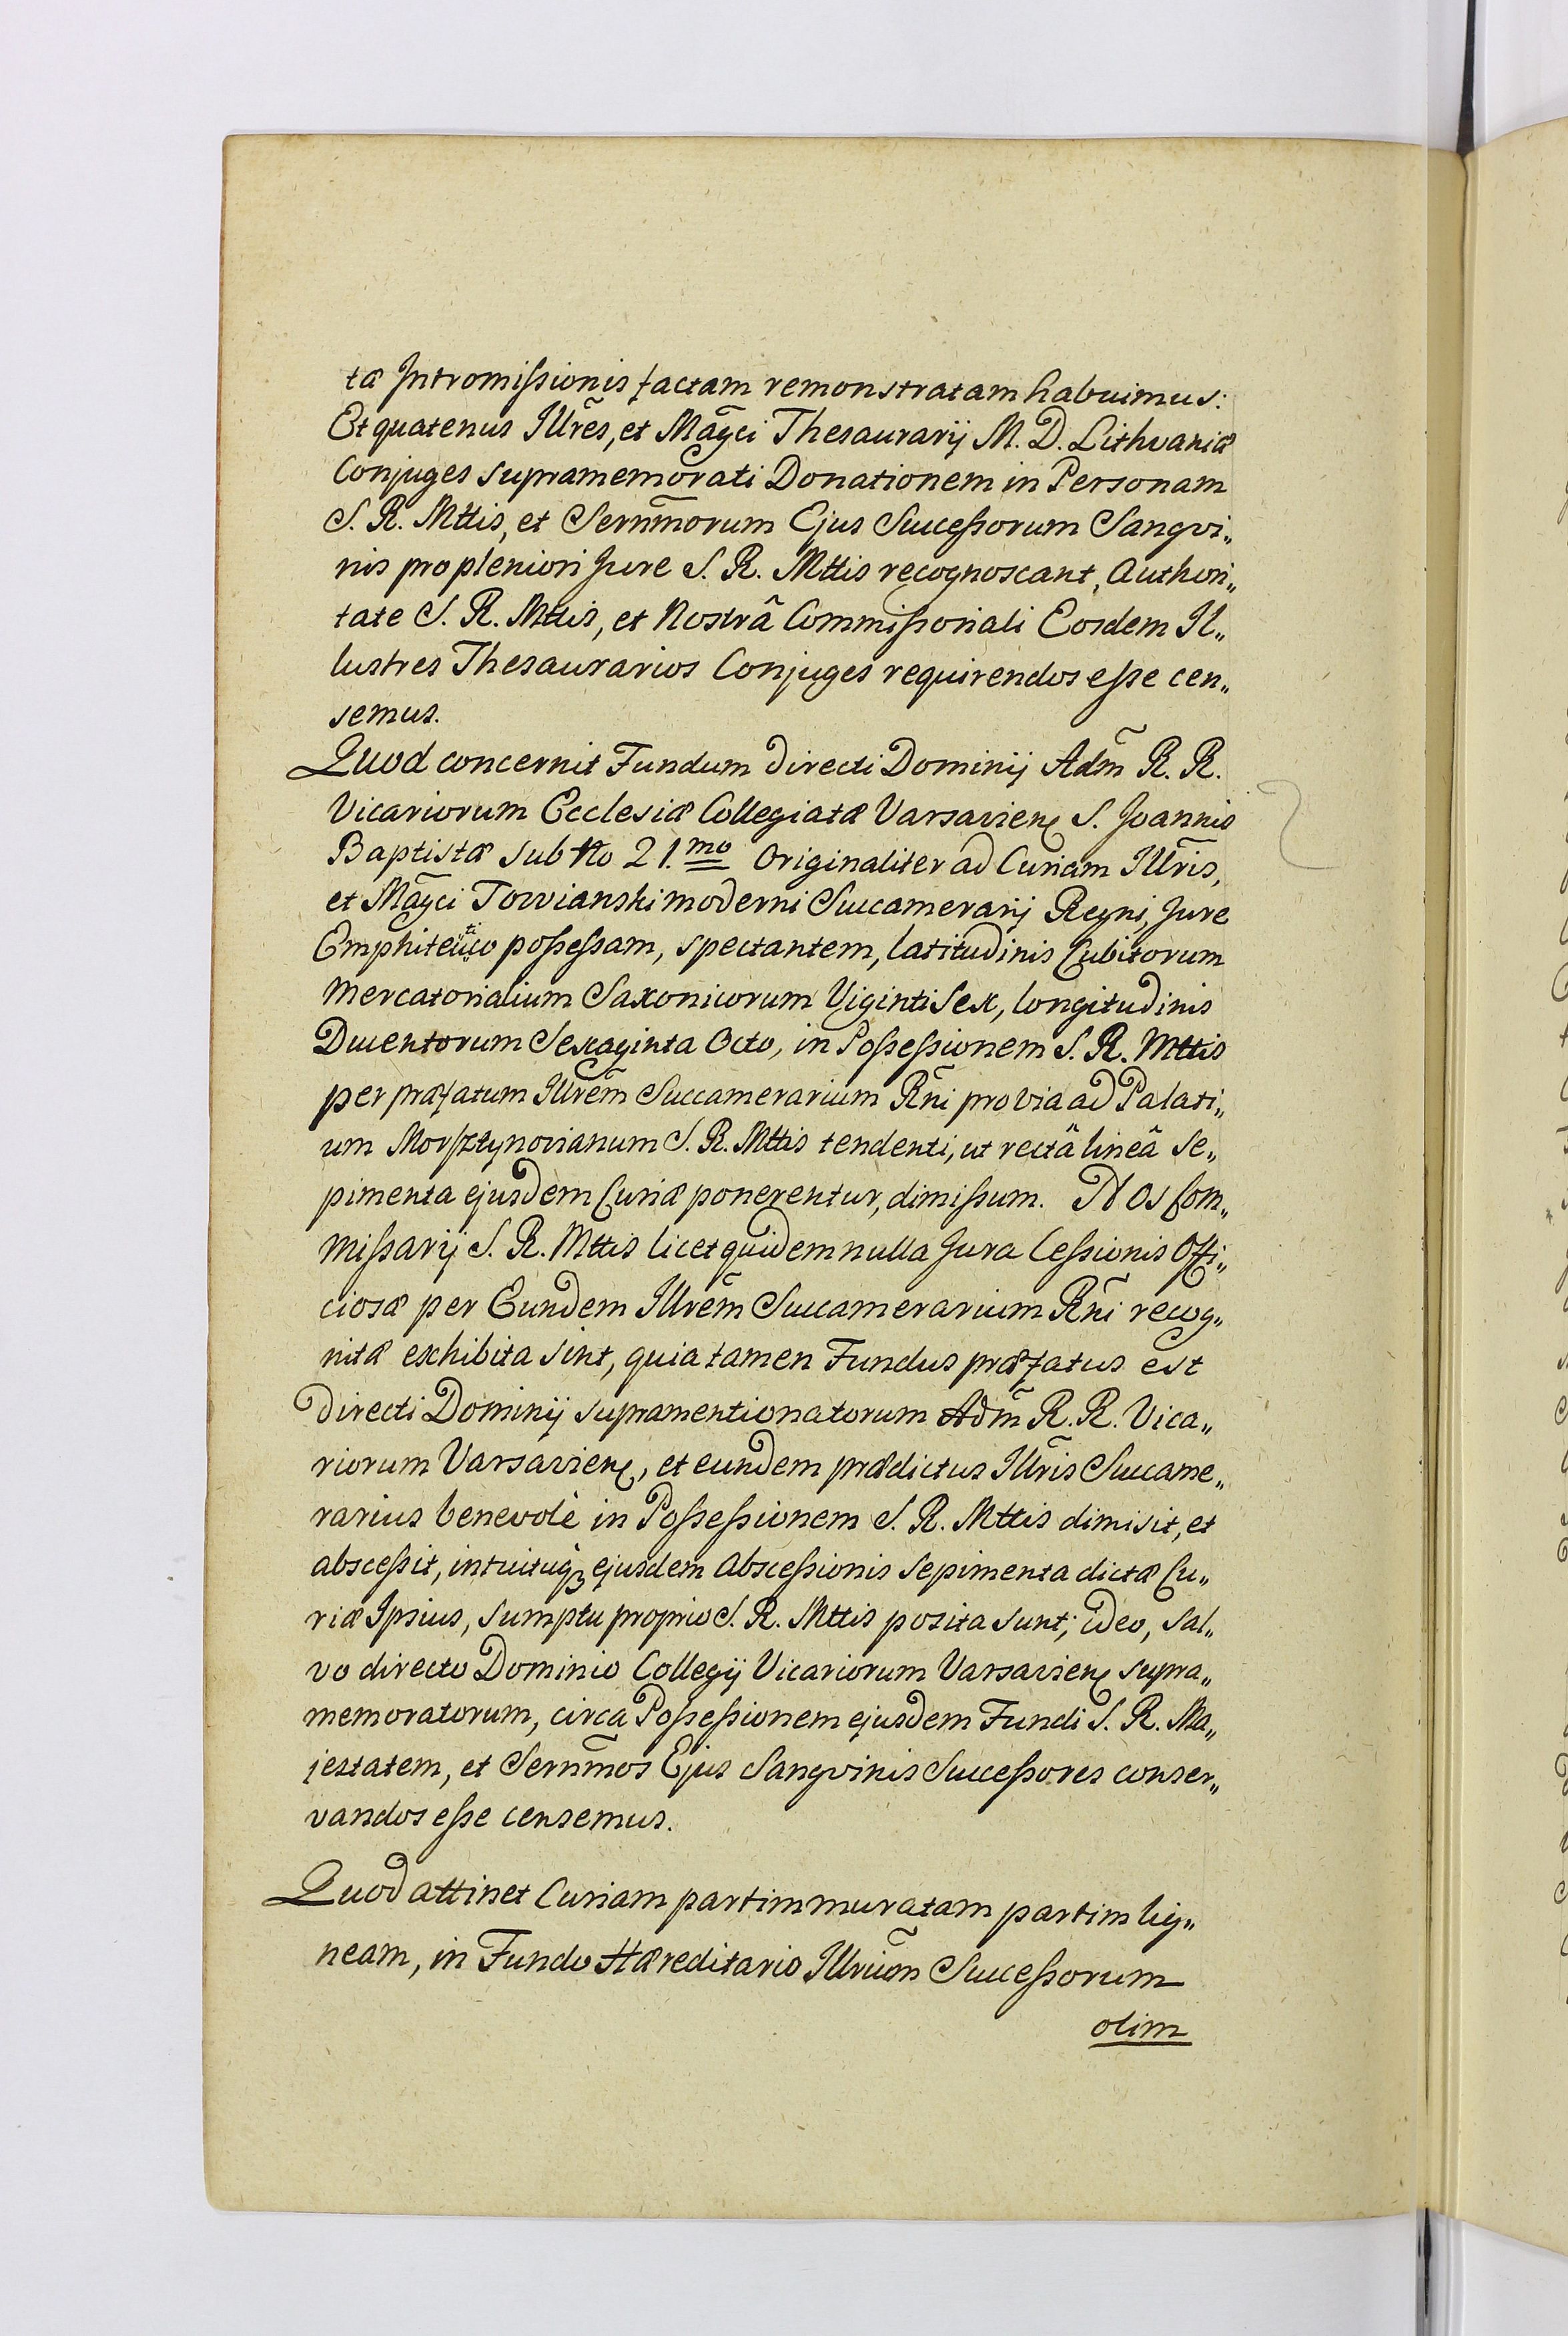 tæ Intromißionis factam remonstratam habuimus:
Et quatenus Illr̃es, et Mãgci Thesaurarij M. D. Lithvaniæ
Conjuges supramemorati Donationem in Personam
S. R. Mttis, et Sernm̃orum Ejus Succeßorum Sangvi„
nis pro pleniori Jure S. R. Mttis recognoscant, Authori„
tate S. R. Mttis, et Nostrâ Commißoriali Eosdem Il„
lustres Thesaurarios Conjuges requirendos eße cen„
semus.
Quod concernit Fundum directi Dominij Adm̃ R. R.
Vicariorum Ecclesiæ Collegiatæ Varsavienẽ S. Joannis
Baptistæ sub No 21.mo Originaliter ad Curiam Illr̃is,
et Mãgci Towianski moderni Succamerarij Regni, Jure
Emphiteutico poßeßam, spectantem, latitudinis Cubitorum
Mercatorialium Saxonicorum Viginti Sex, longitudinis
Ducentorum Sexaginta Octo, in Poßeßionem S. R. Mttis
per præfatum Illrem̃ Succamerarium Rñi pro via ad Palati„
um Morsztynovianum S. R. Mttis tendenti, ut rectâ lineâ se„
pimenta ejusdem Curiæ ponerentur, dimißum. Nos Com„
mißarij S. R. Mttis licet quidem nulla Jura Ceßionis Offi„
ciosæ per Eundem Illrem̃ Succamerarium Rñi recog„
nitæ exhibita sint, quia tamen Fundus præfatus est
directi Dominij supramentionatorum Adm̃ R. R. Vica„
riorum Varsavienẽ, et eundem prædictus Illr̃is Succame„
rarius benevolè in Poßeßionem S. R. Mttis dimisit, et
absceßit, intuituqꝫ ejusdem Absceßionis sepimenta dictæ Cu„
riæ Ipsius, sumptu proprio S. R. Mttis posita sunt; ideo, sal„
vo directo Dominio Collegij Vicariorum Varsavienẽ supra„
memoratorum, circa Poßeßionem ejusdem Fundi S. R. Ma„
jestatem, et Sernm̃os Ejus Sangvinis Succeßores conser„
vandos eße censemus.
Quod attinet Curiam partim muratam partim lig„
neam, in Fundo Hæreditario Illrium̃ Succeßorum
olim